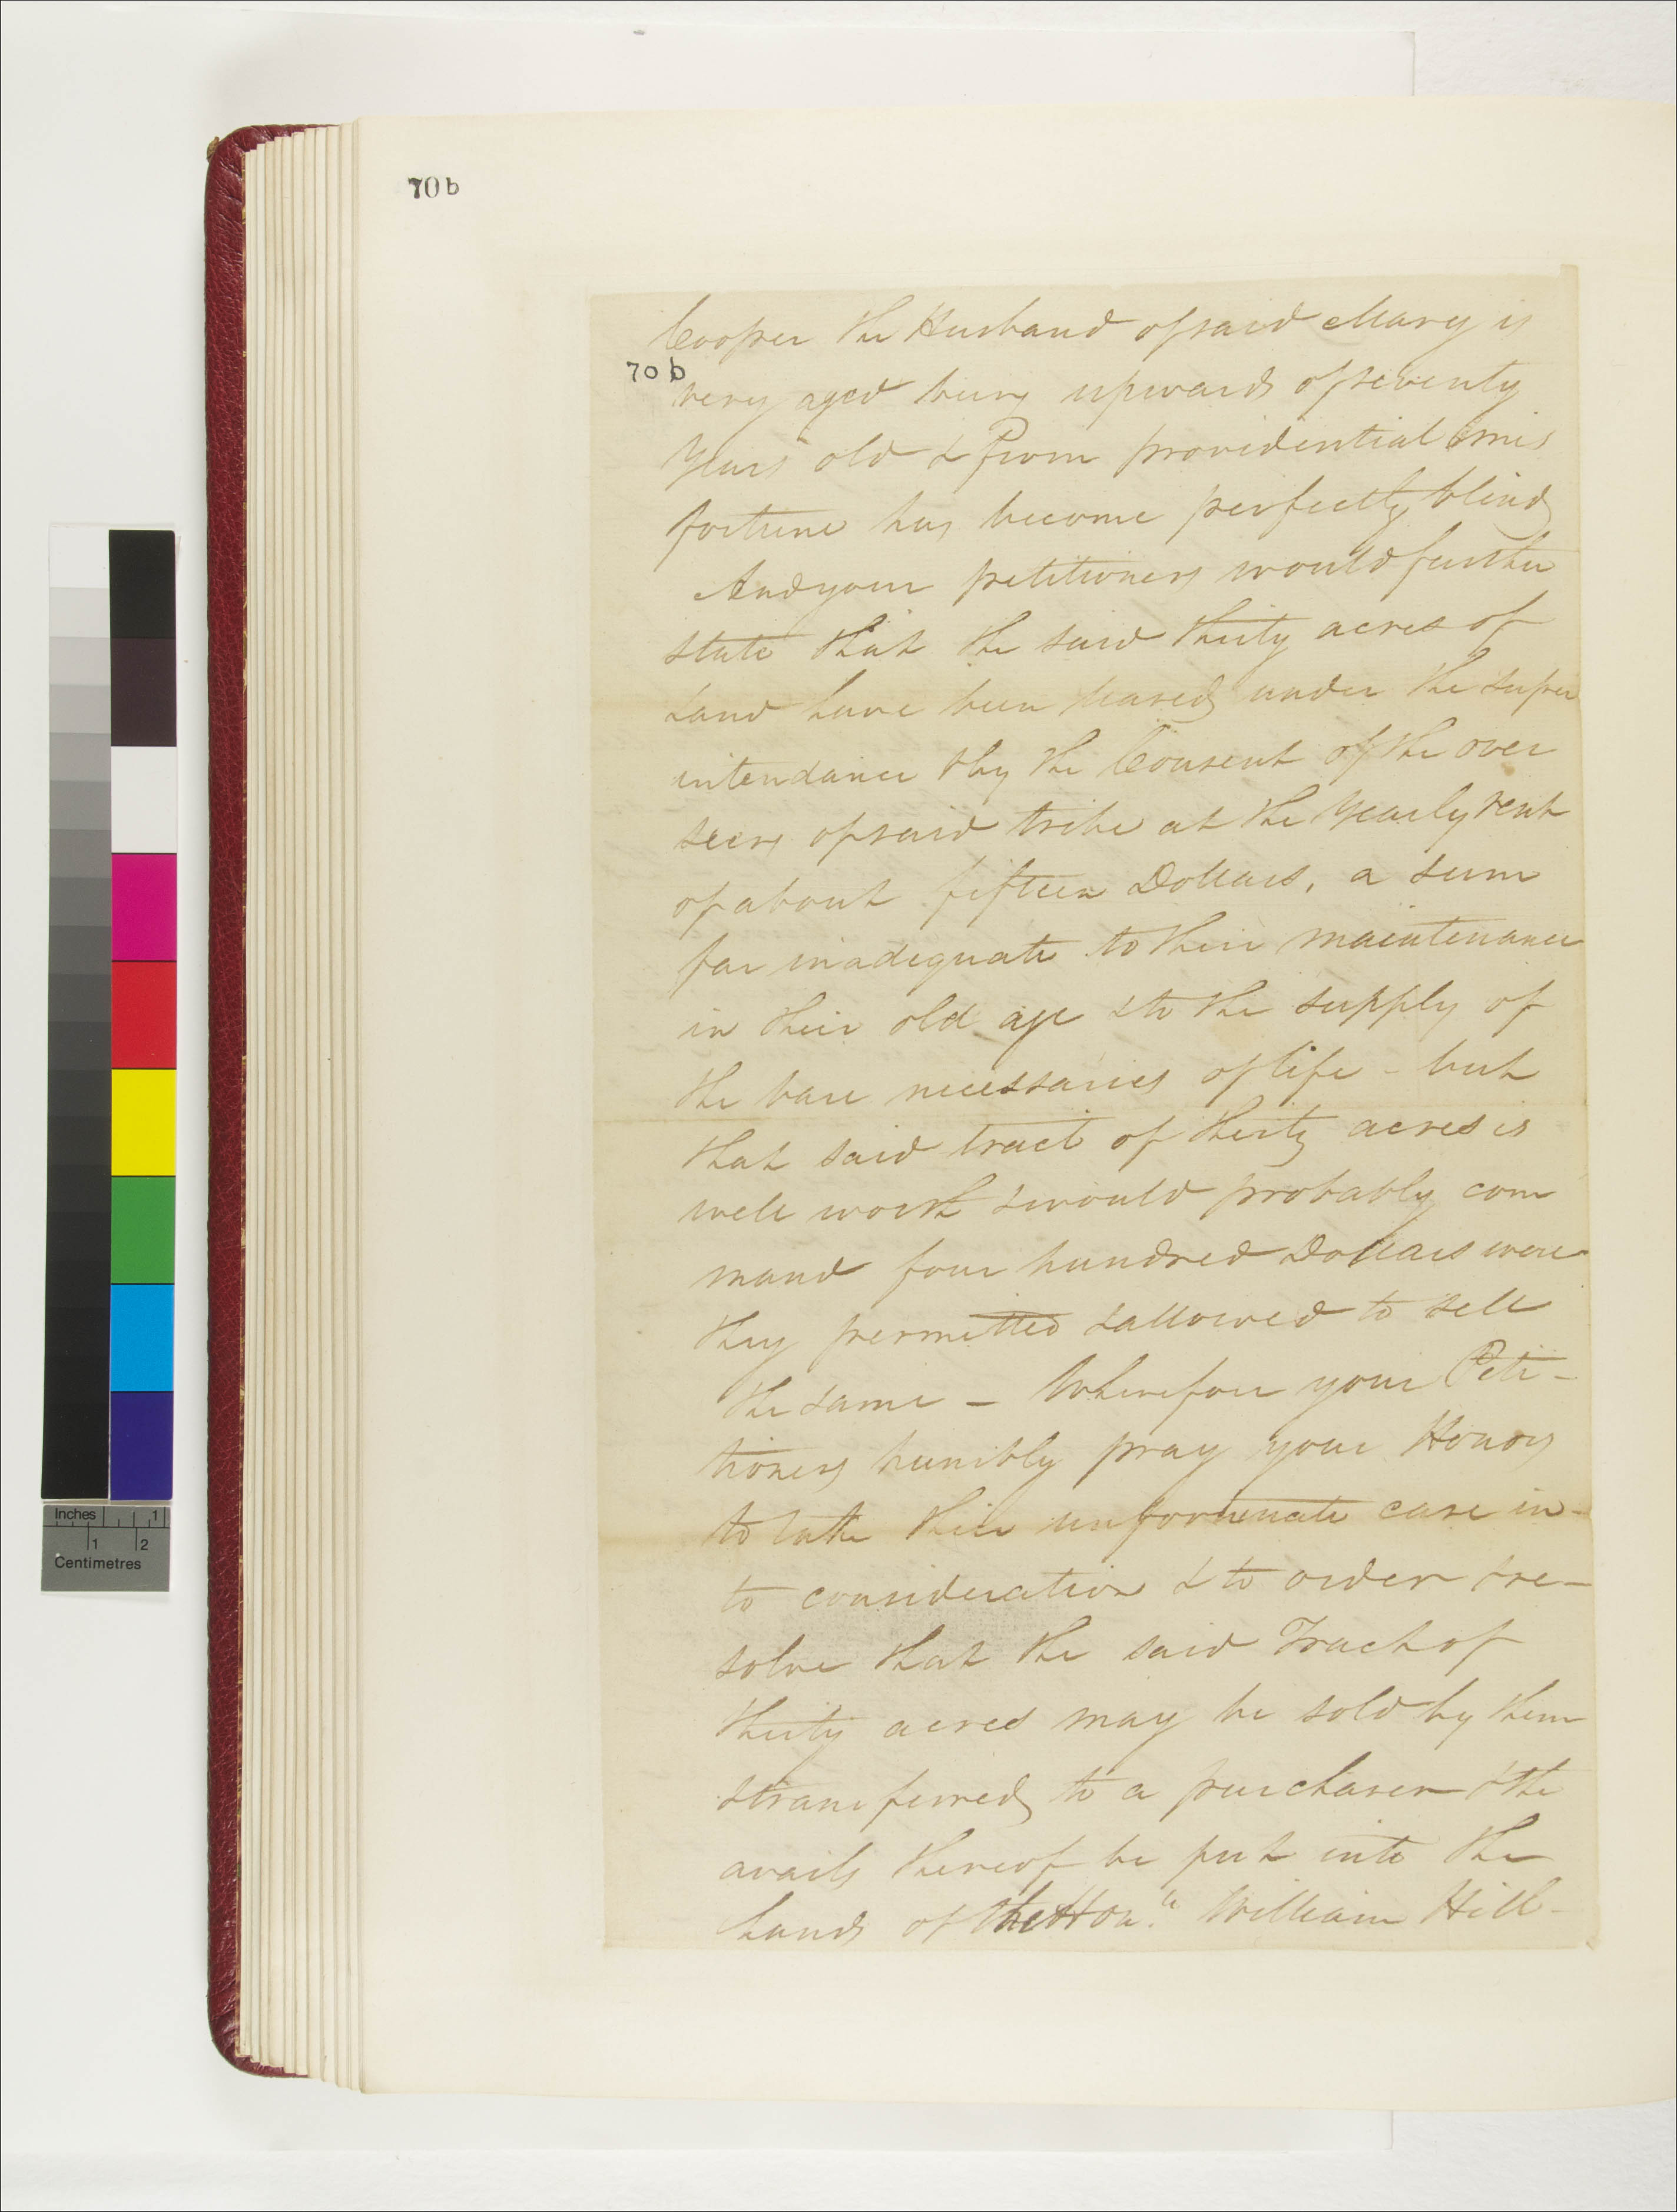 70 b
Cooper the Husband of said Mary is
70 b
very aged being upwards of seventy
Years old & from providential mis
fortune has become perfectly blind
And your petitioners would further
state that the said thirty acres of
Land have been leased under the super
intendance & by the Consent of the over
seers of said tribe at the Yearly rent
of about fifteen Dollars, a sum
far inadequate to their maintenance
in their old age & to the supply of
the bare necessaries of life - but
that said tract of thirty acres is
well worth & would probably com
mand four hundred Dollars were
they permitted & allowed to sell
the same - Wherefore your Peti-
tioners humbly pray your Honors
to take their unfortunate case in-
to consideration & to order & re-
solve that the said Tract of
thirty acres may be sold by them
& transferred to a purchaser & the
avails thereof be put into the
hands of the Hon.le William Hill-
Inches 1
1 2
Centimetres